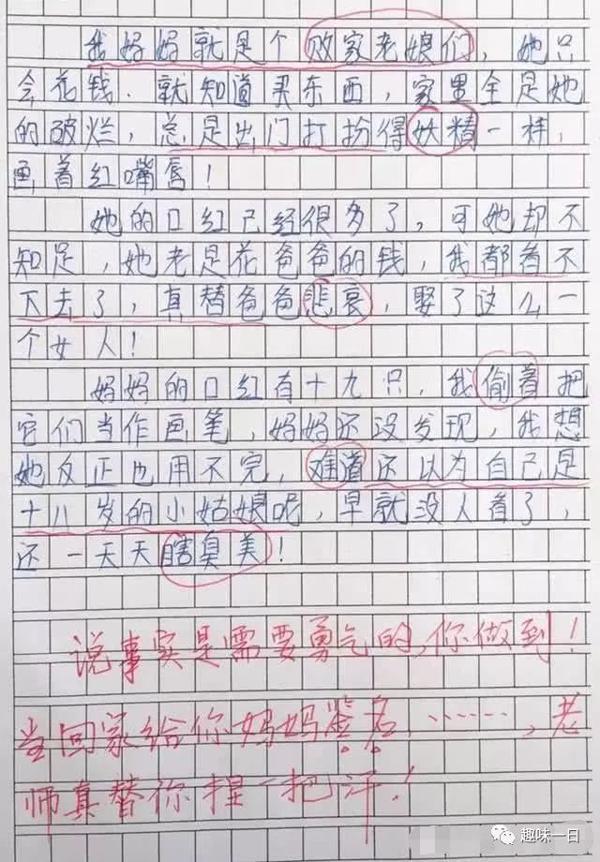 我妈妈就是个败家老娘们，她只
会花钱．就知道买东西，家里全是她
的破烂，总是出门打扮得妖精一样，
画着红嘴唇！
她的口红已经很多了，可她却不
知足，她老是花爸爸的钱，我都看不
下去了，真替爸爸悲哀，娶了这么一
个女人！
妈妈的口红有十九只，我偷着把
它们当作画笔，妈妈还没发现，我想
她反正也用不完，难道还以为自己是
十八岁的小姑娘呢，早就没人看了，
还一天天瞎臭美！
说事实是需要勇气的，你做到！
当回家给你妈妈鉴名……，老
师真替你捏一把汗！
趣味一日